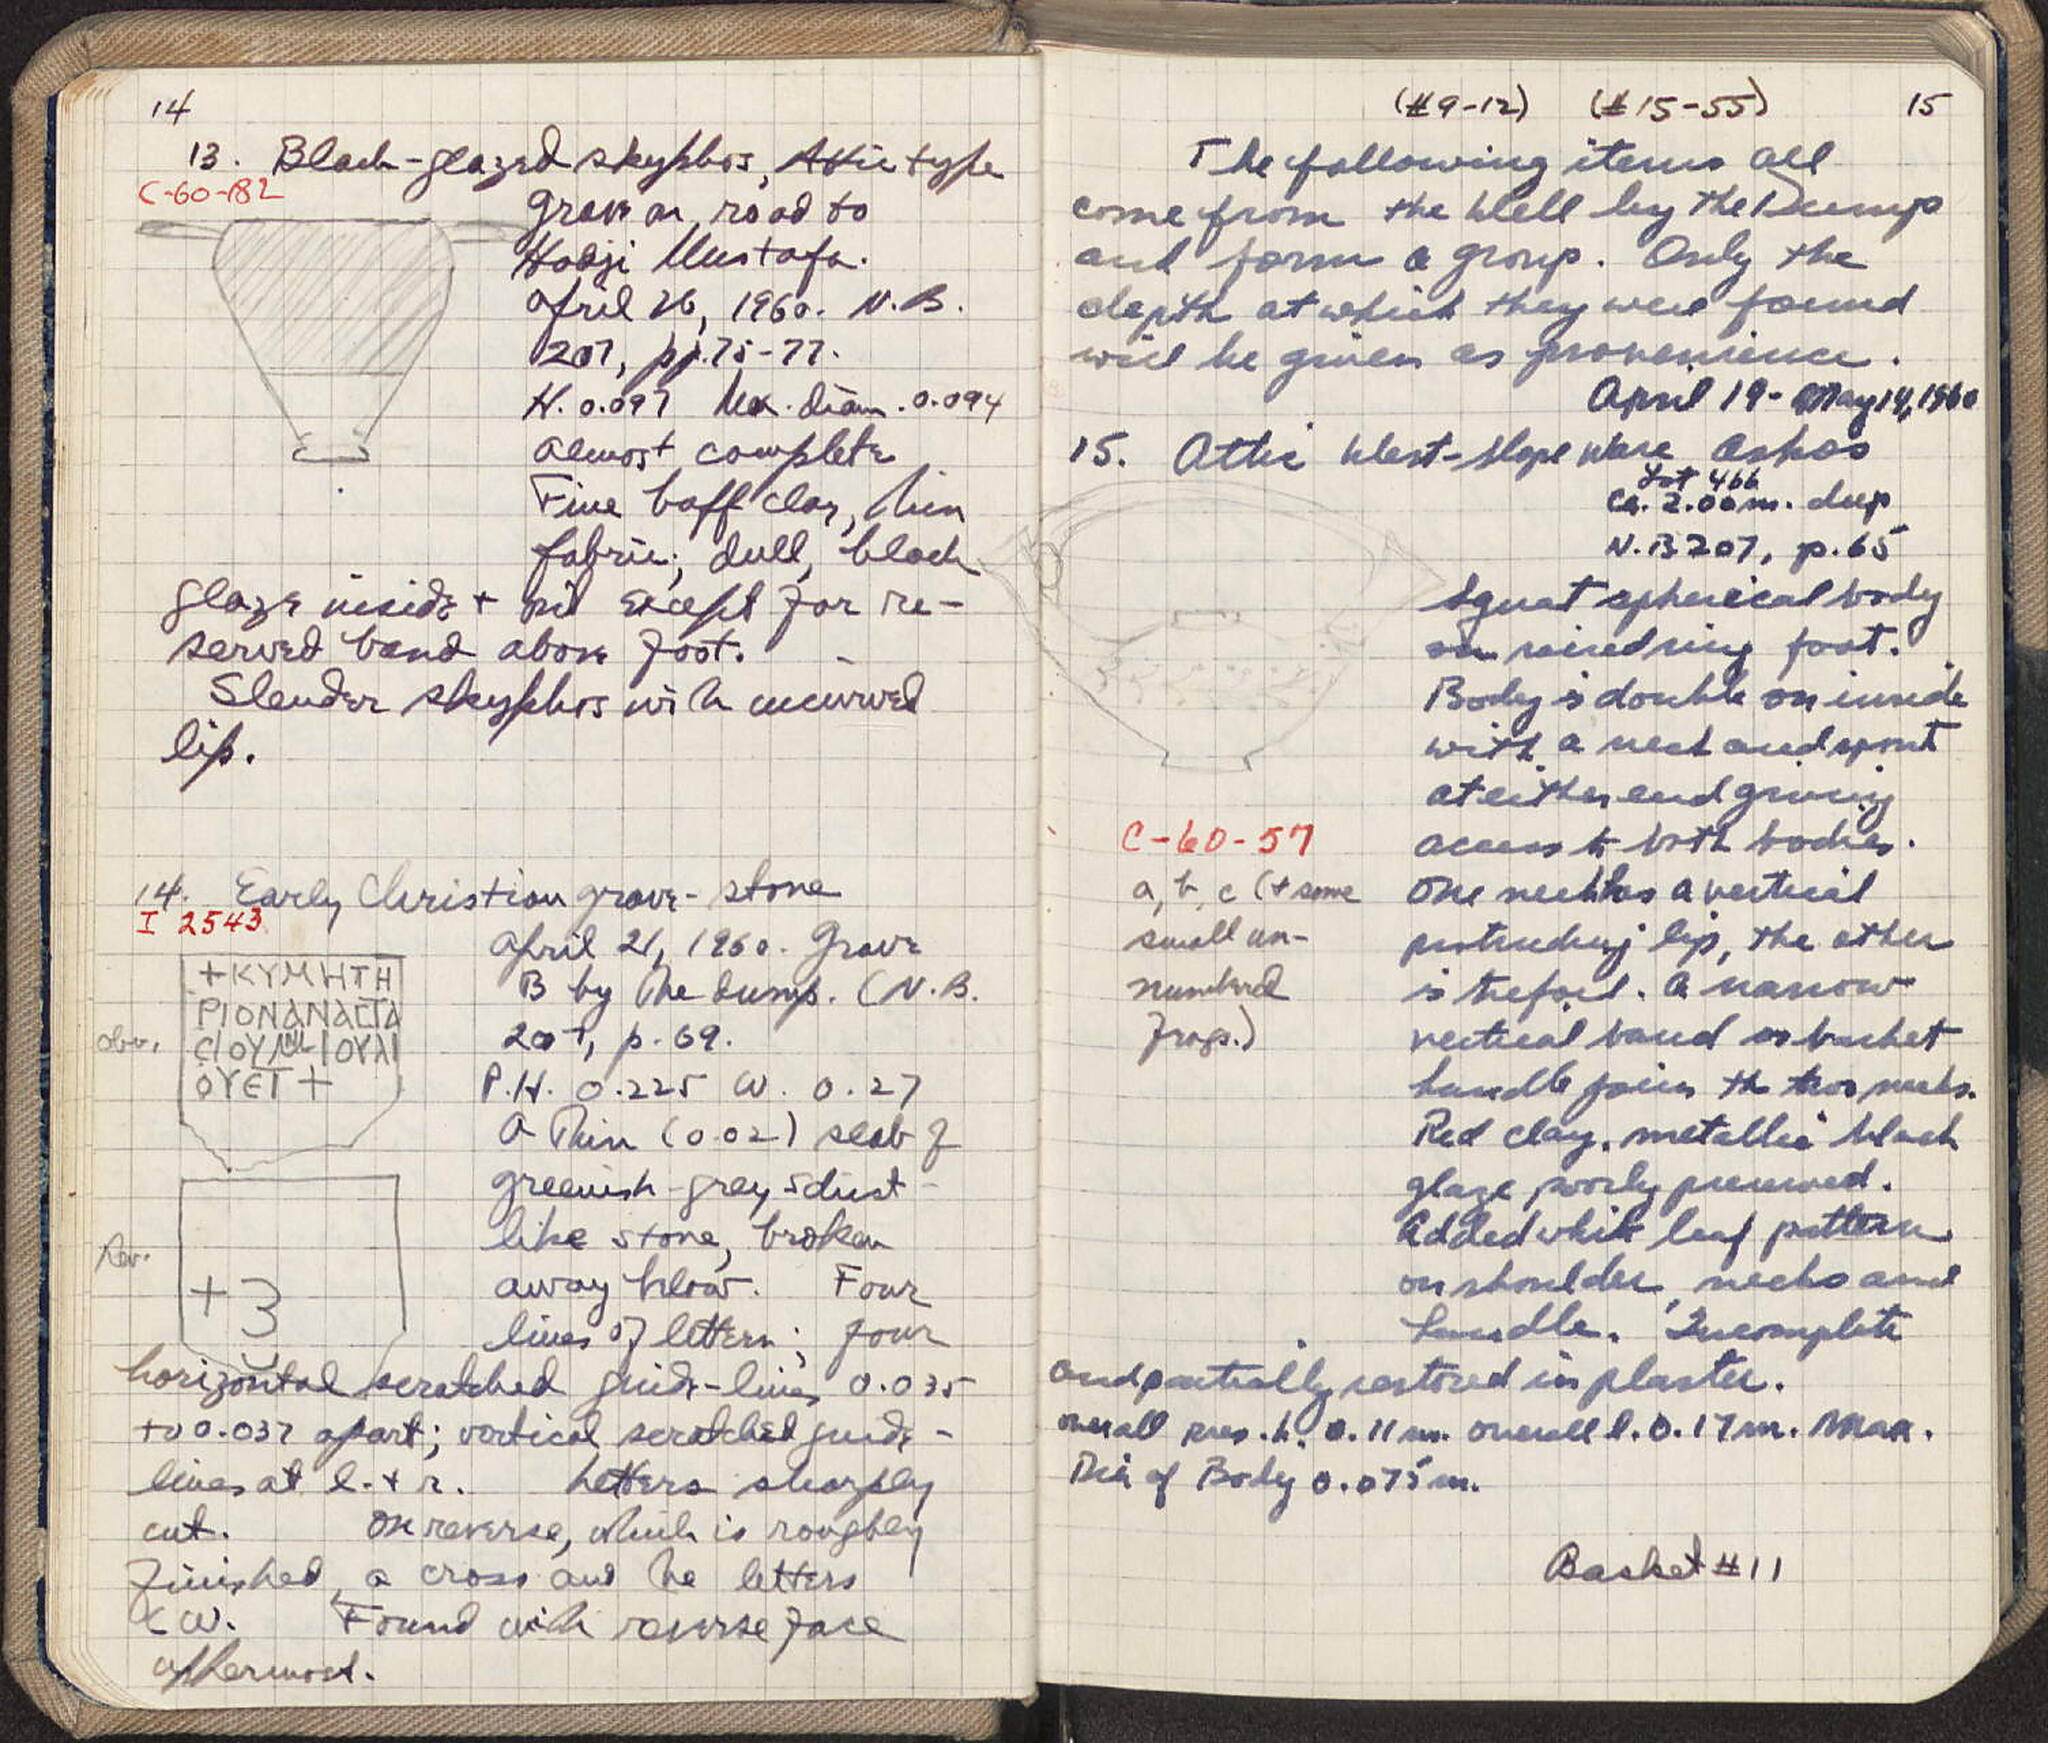 14
13. Black-glazed skyphos, Attic type
C-60-182
Grave on road to
Hadji Mustafa.
April 26, 1960. N.B.
207, pp. 75-77.
H. 0.097 Max. diam. 0.094
Almost complete
Fine buff clay, thin
fabric; dull, black
glaze inside + out except for re-
served band above foot.
Slender skyphos with incurved
lip.
14. Early Christian grave-stone
I 2543
April 21, 1960. Grave
B by the dump. (N.B.
207, p. 69.
P.H. 0.225 W. 0.27
A thin (0.02) slab of
greenish-grey schist-
like stone, broken
away below. Four
lines of letters; four
horizontal scratched guide-lines 0.035
to 0.037 apart; vertical scratched guide-
lines at l. + r. Letters sharply
cut. On reverse, which is roughly
finished, a cross and the letters
Found with reverse face
uppermost.
obv.
+ΚΥΜΗΤΗ
ΡΙΟΝΑΝΑСΤΑ
ΟΥЄΤ +
Rev.
+
(#9-12) (#15-55) 15
The following items all
come from the Well by the Dump
and form a group. Only the
depth at which they were found
will be given as provenience.
April 19 - May 14, 1960
15. Attic West-Slope Ware Askos
Lot 466
ca. 2.00 m. deep
N.B 207, p. 65
Squat spherical body
on raised ring foot.
Body is double on inside
with a neck and spout
at either end giving
access to both bodies.
One neck has a vertical
protruding lip, the other
is trefoil. A narrow
vertical band as basket
handle joins the two necks.
Red clay, metallic black
glaze poorly preserved.
Added white leaf pattern
on shoulder, necks and
handle. Incomplete
and partially restored in plaster.
overall pres. h. 0.11 m. overall l. 0.17 m. Max.
Dia of Body 0.075 m.
C-60-57
a, b, c (+ some
small un-
numbered
frags.)
Basket #11